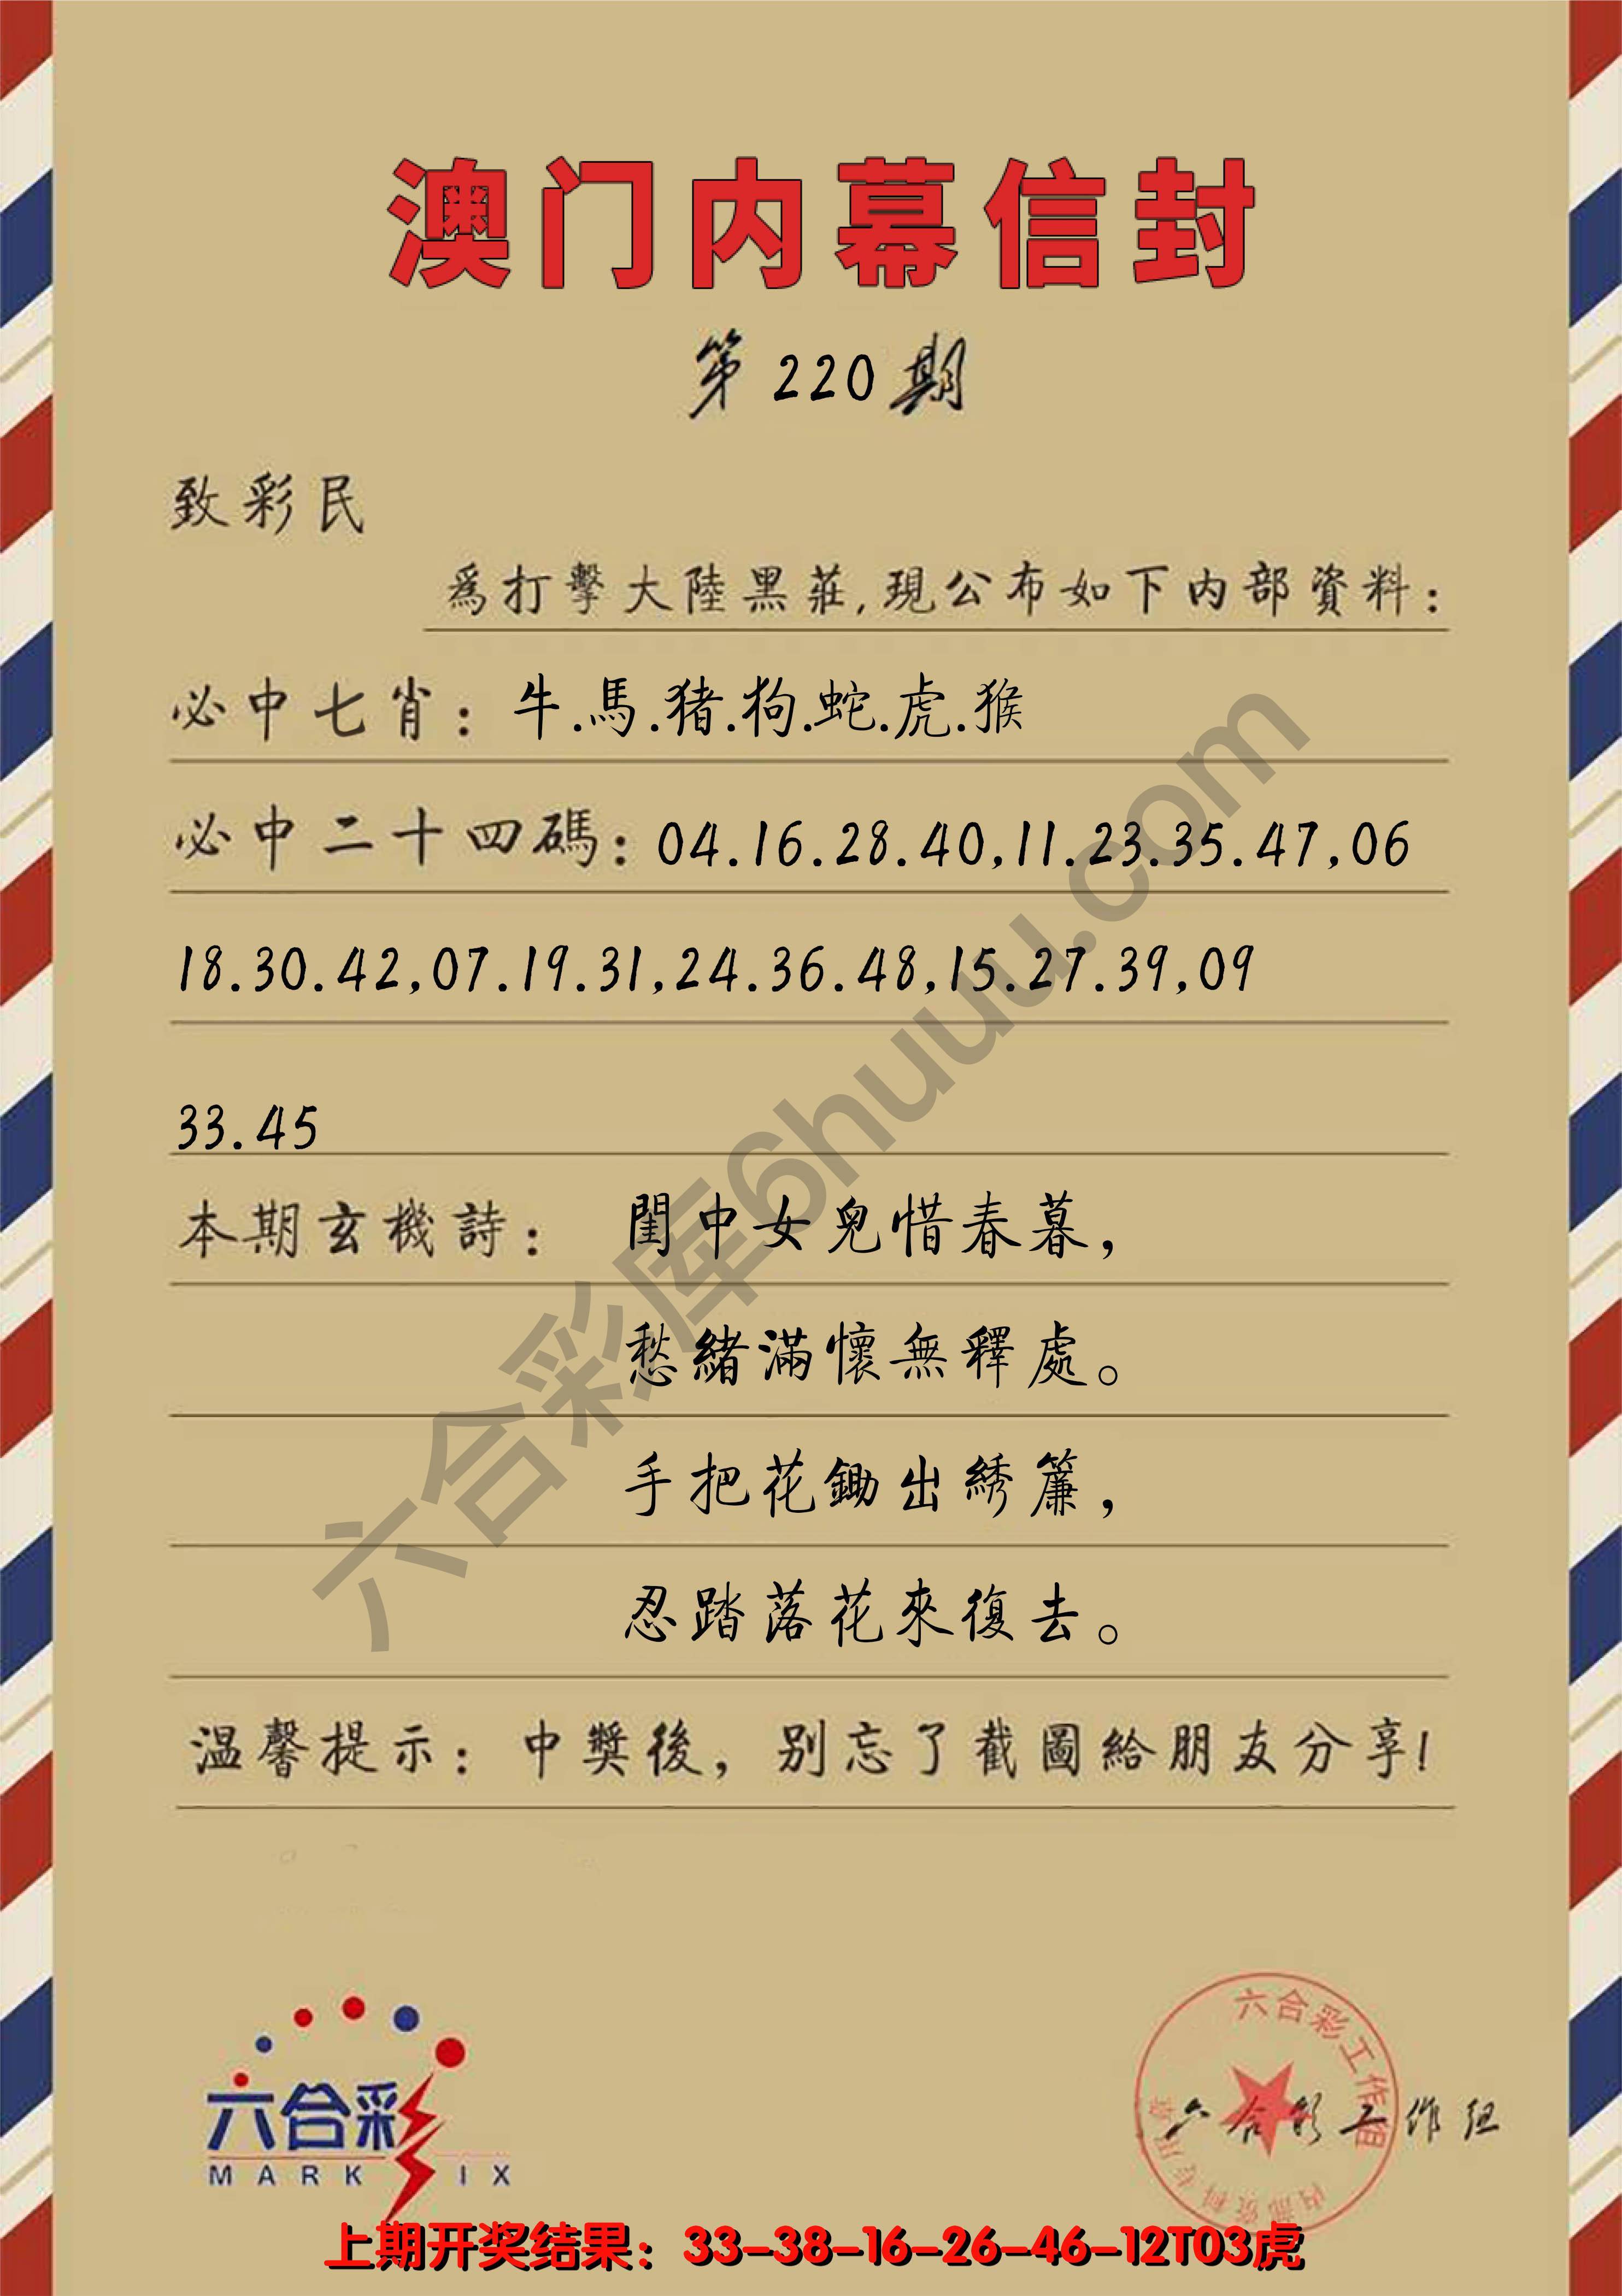 澳门内幕信封
第220期
致彩民
為打擊大陸黑莊,現公布如下内部資料:
必中七肖: 牛.馬.猪.狗.蛇.虎.猴
必中二十四碼: 04.16.28.40,11.23.35.47,06
18.30.42,07.19.31,24.36.48,15.27.39,09
33.45
本期玄機詩: 閨中女兒惜春暮,
愁緒滿懷無釋處。
手把花鋤出綉簾,
忍踏落花來復去。
温馨提示: 中獎後, 别忘了截圖給朋友分享!
六合彩库6huuu.com
六合彩
MARK IX
六合彩工作组
内部资料专用章
六合彩工作组
上期开奖结果: 33-38-16-26-46-12T03虎